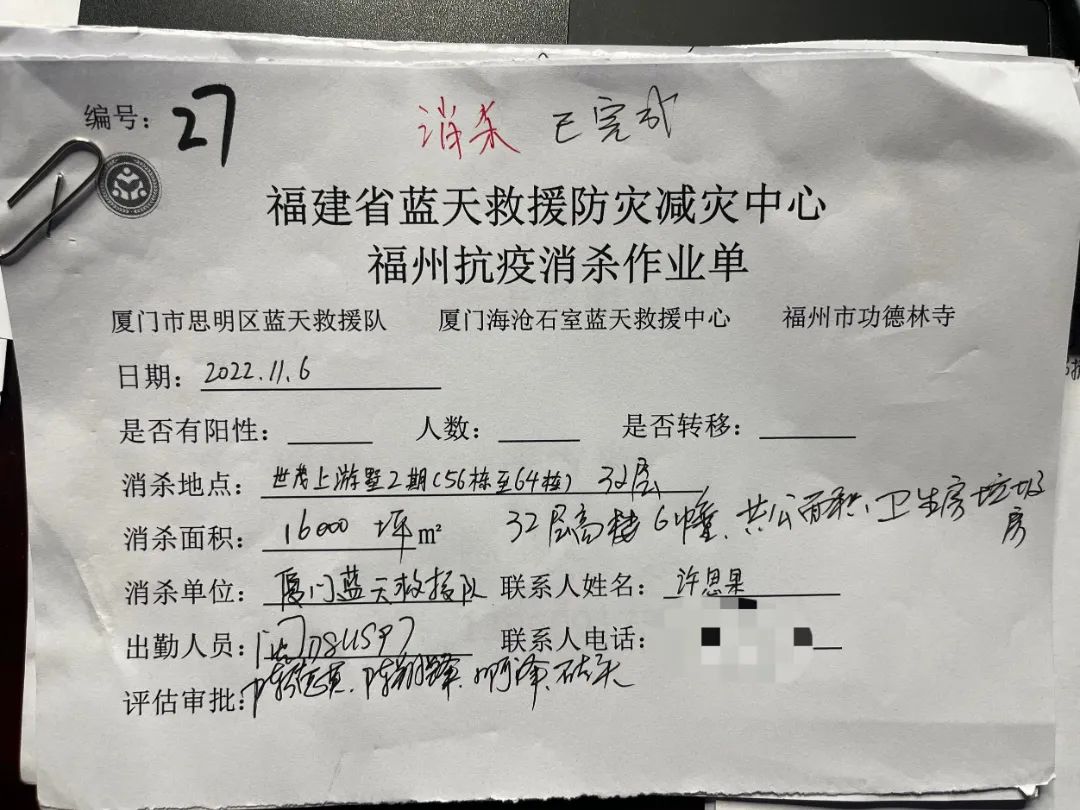 编号：27 消杀 已完成
福建省蓝天救援防灾减灾中心
福州抗疫消杀作业单
厦门市思明区蓝天救援队 厦门海沧石室蓝天救援中心 福州市功德林寺
日期：2022.11.6
是否有阳性： 人数： 是否转移：
消杀地点：世茂上游墅2期(56栋至64栋) 32层
消杀面积：16000 坪 m² 32层高楼6幢、共公面积、卫生房垃圾房
消杀单位：厦门蓝天救援队 联系人姓名：许思果
出勤人员： 联系人电话：
评估审批：